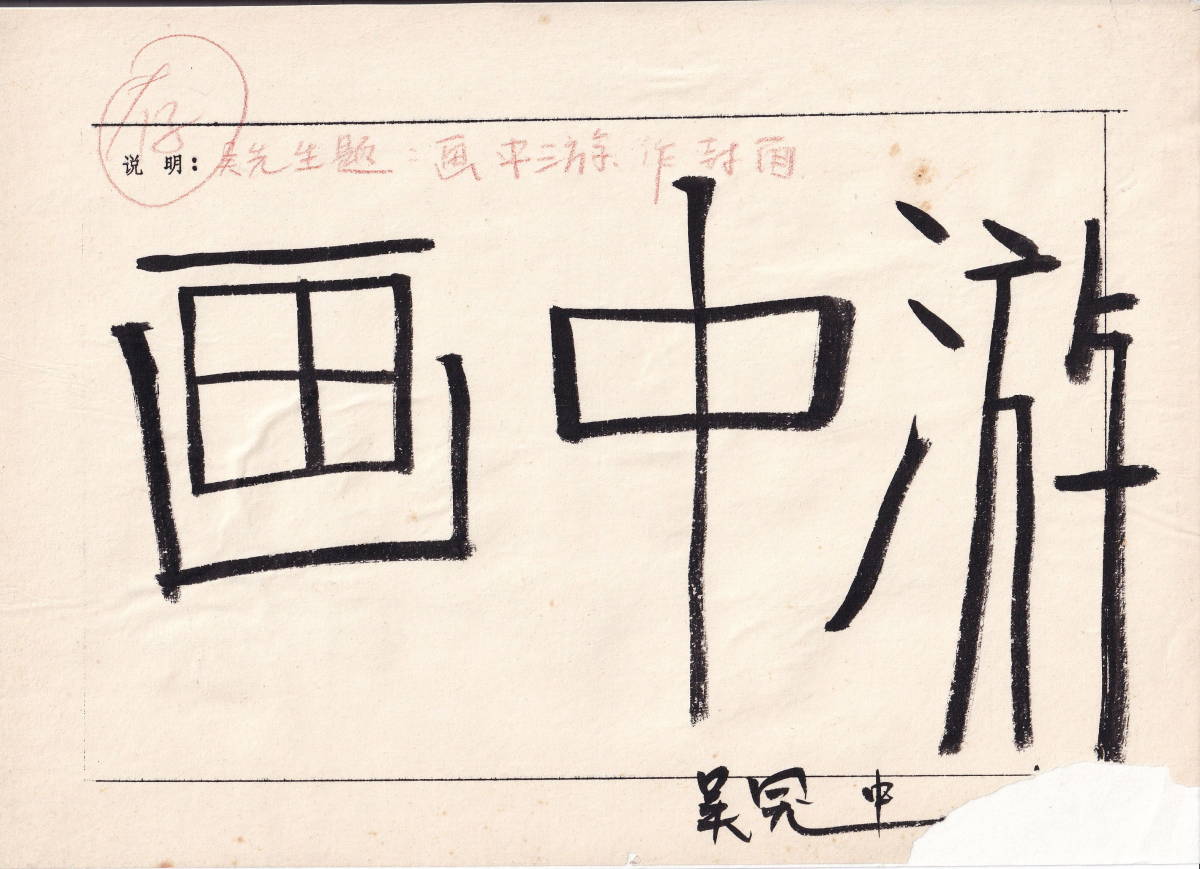 说 明：吴先生题：画中游作封面
画中游
吴冠中